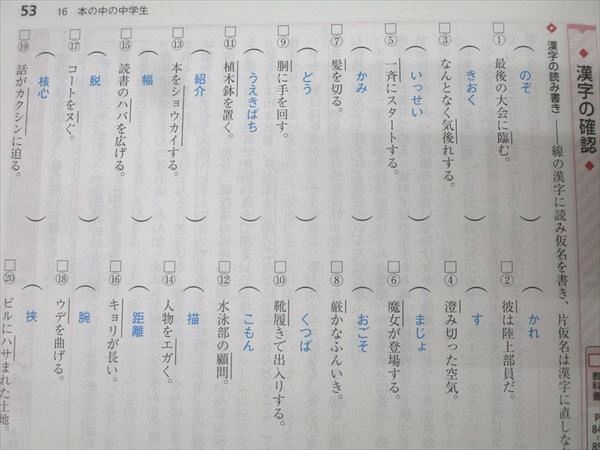 53 16 本の中の中学生
◆漢字の確認◆
◇漢字の読み書き ――線の漢字に読み仮名を書き、片仮名は漢字に直しな
教科書
P
84
89
□① 最後の大会に臨む。
(のぞ)
□② 彼は陸上部員だ。
かれ
□③ なんとなく気後れする。
(きおく)
□④ 澄み切った空気。
(す
□⑤ 一斉にスタートする。
(いっせい)
□⑥ 魔女が登場する。
(まじょ
□⑦ 髪を切る。
(かみ)
□⑧ 厳かなふんいき。
(おごそ
□⑨ 胴に手を回す。
(どう)
□⑩ 靴履きで出入りする。
(くつば
□⑪ 植木鉢を置く。
(うえきばち)
□⑫ 水泳部の顧問。
(こもん
□⑬ 本をショウカイする。
(紹介)
□⑭ 人物をエガく。
(描
□⑮ 読書のハバを広げる。
(幅)
□⑯ キョリが長い。
(距離
□⑰ コートをヌぐ。
(脱)
□⑱ ウデを曲げる。
(腕
□⑲ 話がカクシンに迫る。
(核心)
□⑳ ビルにハサまれた土地。
(挟